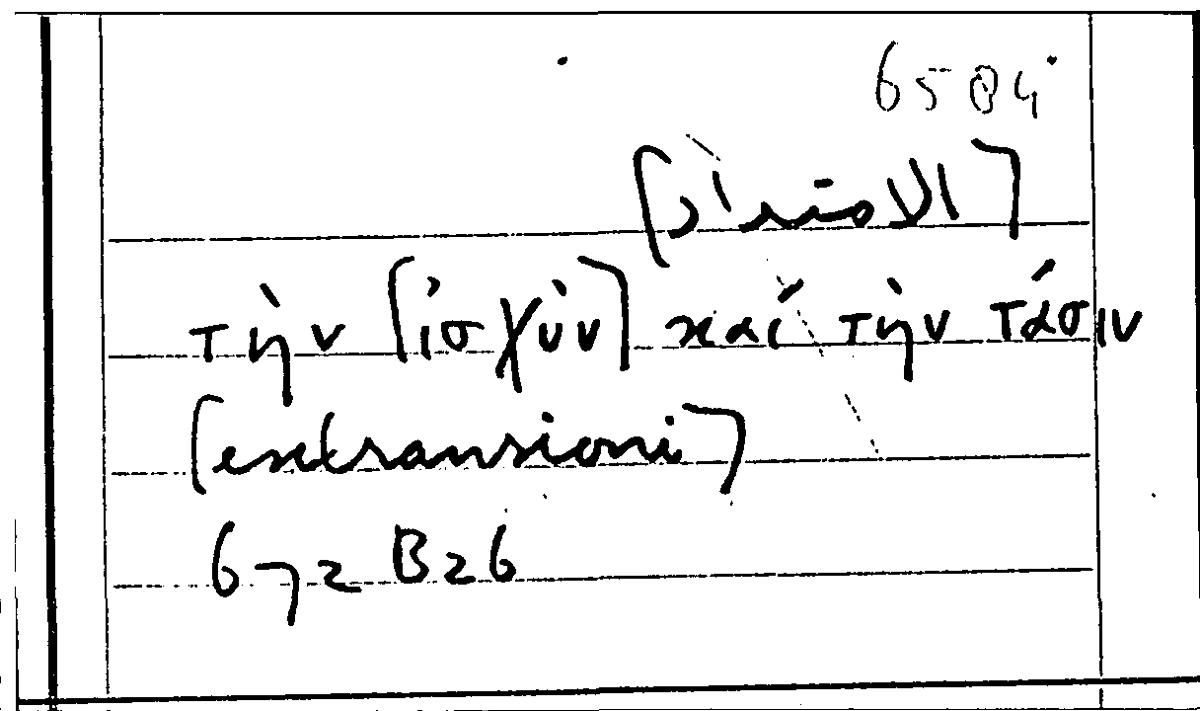 6504
[الامتداد]
τὴν [ἰσχὺν] καί τὴν τάσιν
[extransioni]
672 B26